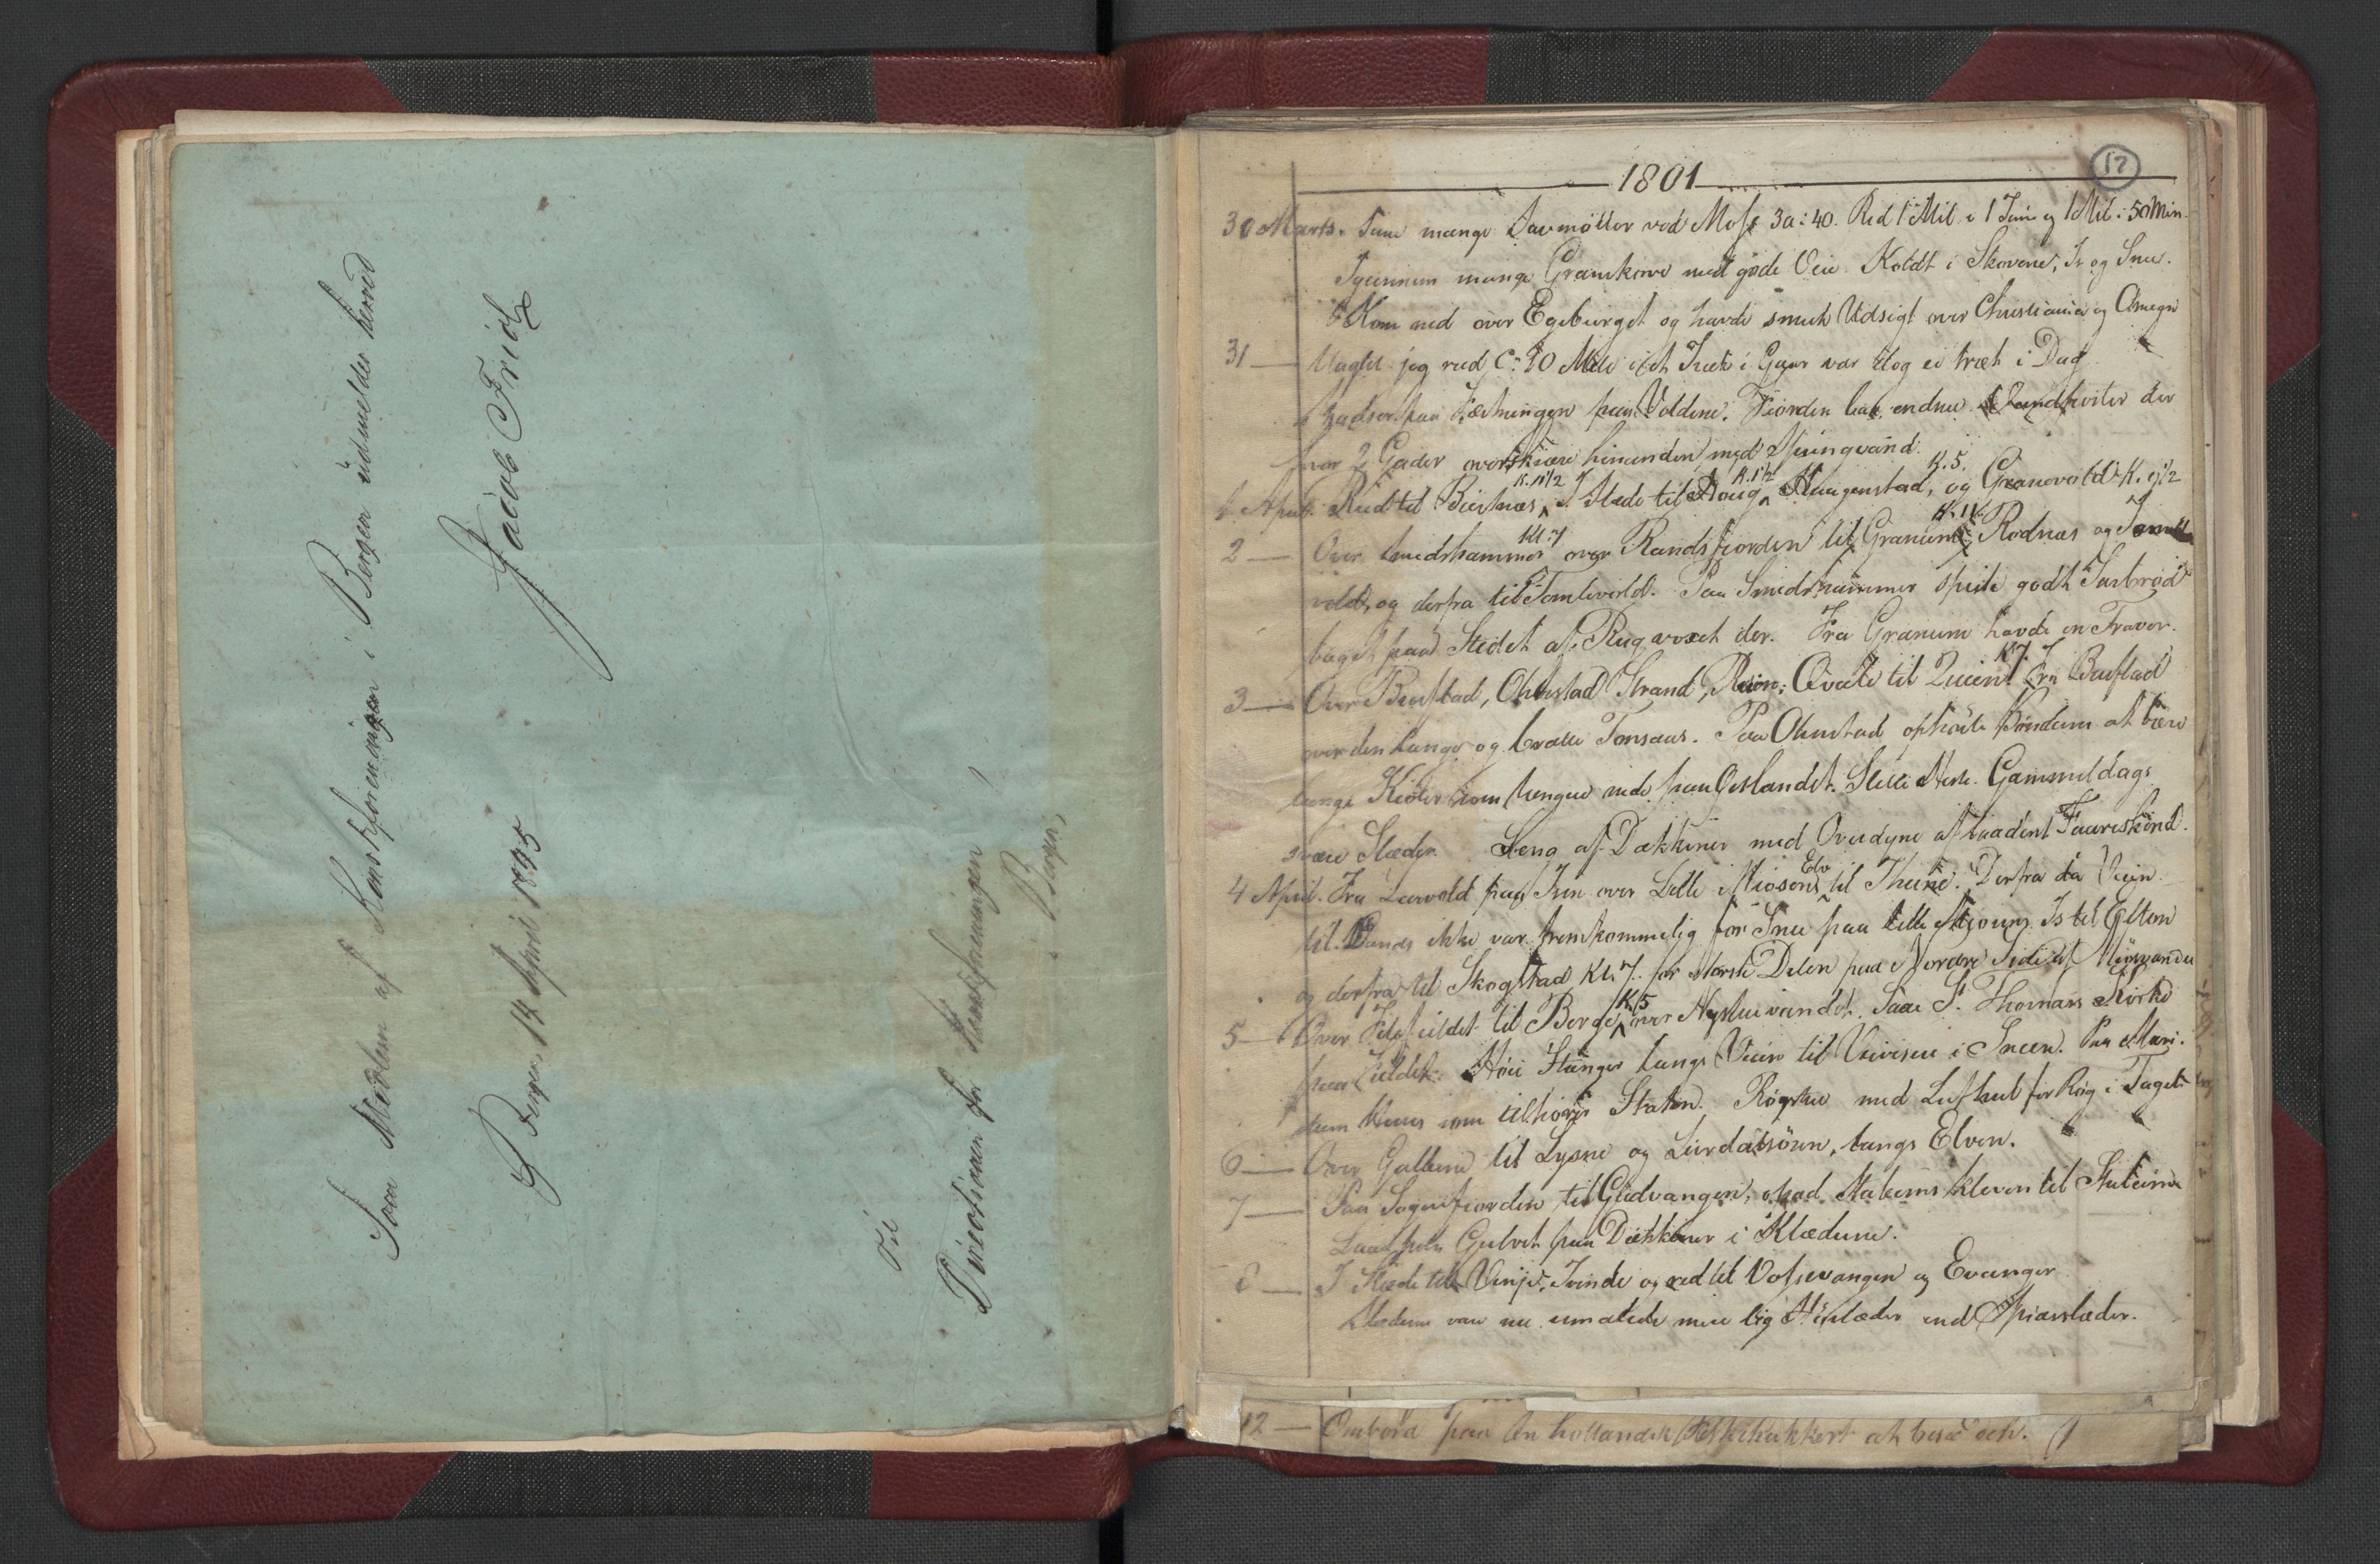 Som Medlem af Kunstforeningen i Bergen udmelder herved
Jacob Frid
Bergen, 14 April 1895
Til
Directionen for Kunstforeningen,
i Bergen,
17
1801
30 Marts. Saae mange Savmøller ved Moss 3 a: 40. Red 1 Miil i 1 Time og 1 Mil i 50 Min.
Igiennem mange Granskove med gode Veie. Koldt i Skovene, Is og Snee.
Kom ned over Egebierget og havde smuk Udsigt over Christiania og Omegn
31 — Uagtet jeg red Ca 10 Mile i et Træk i Gaar var dog ei træt i Dag
paa Fæstningen paa Voldene. Fiorden laae endnu der
hvor 2 Gader overskiære hinanden med Springvand.
1 April. Red til K. 11 1/2 I Slæde til Houg K. 1 1/2 Haugenstad, K. 5. og Granevold K. 9 1/2
2 — Over Smedshammer Kl. 7 over Randsfiorden til Granum K. 11 Rodnæs og
vold, og derfra til Tomlevold. Paa Smedshammer spiste godt Surbrød
baget paa Stedet af Rug voxet der. Fra Granum havde en Traver.
3 — Over Olmstad Strand, Reien, Qvale til K 7. Fra
over den lange og bratte Tonsaas. Paa Olmstad ophørte Bønderne at bære
lange Kioler som hængte nede paa Østlandet. Slette Heste. Gammeldags
svære Slæder. Seng af Dækkener med Overdyne af laadent Faareskind.
4 April. Fra paa Isen over Lille Miøsens Elv til Thune. Derfra da Veien
til ikke var fremkommelig for Snee paa Lille Miøsens Is til Øilton
og derfra til Skogstad Kl. 7. for største Delen paa Nordre Side af
5 — Over Filefieldet til Borge K 5 over Nystuevandet. Saae St. Thomas Kirke
paa Fieldet. Høie Stænger langs Veien til Veivisere i Sneen. Paa Mari-
stuen Huus som tilhører Staten. Røgstue med Lufthul for Røg i Taget
6 — Over Gallerne til Lysne og Leirdalsøren, langs Elven.
7 — Paa Sognefiorden til Gudvangen, opad Stalheims Kleven til Stalheim
Laae paa Gulvet paa Dækkener i Klæderne.
8 — I Slæde til Vinje, Tvinde og red til Vossevangen og Evanger
Slæderne vare nu umalede mere lig Høslæder end Spidsslæder.
12 — Ombord paa en hollandsk at besee den.